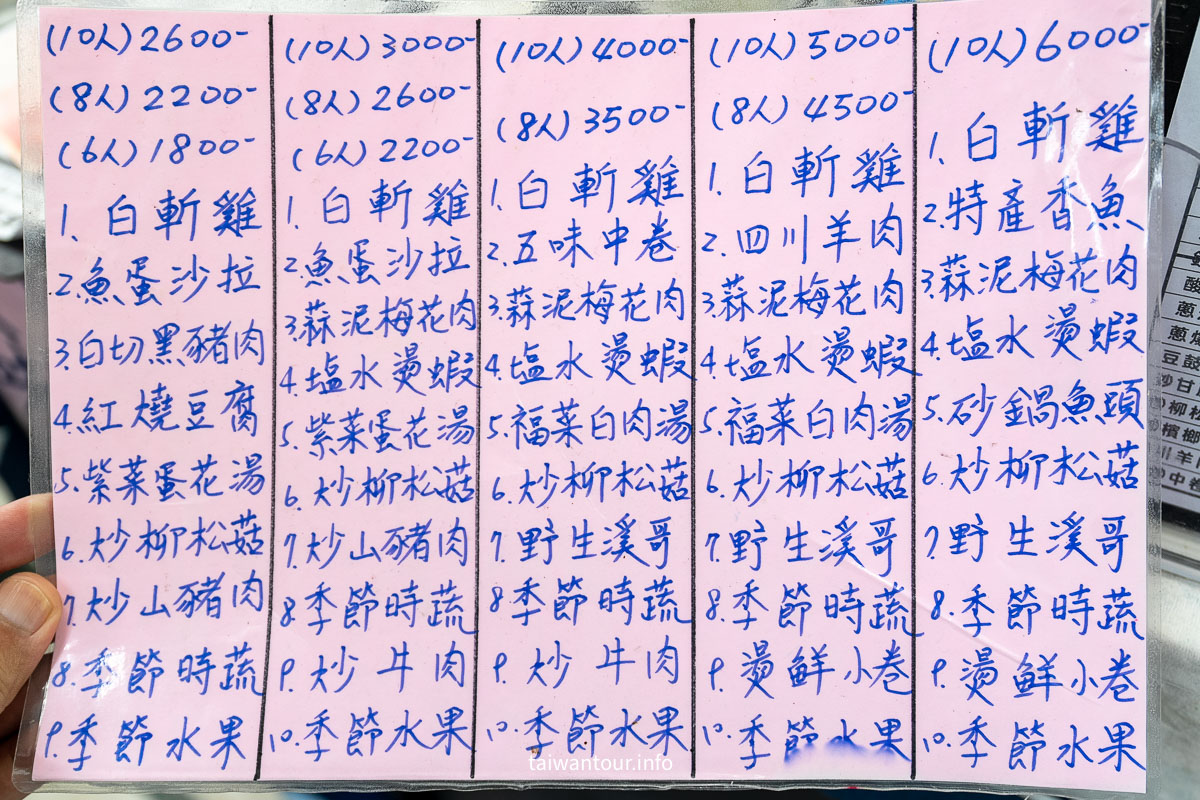 (10人)2600-
(8人)2200-
(6人)1800-
1. 白斬雞
2. 魚蛋沙拉
3. 白切黑豬肉
4. 紅燒豆腐
5. 紫菜蛋花湯
6. 炒柳松菇
7. 炒山豬肉
8. 季節時蔬
9. 季節水果
(10人)3000-
(8人)2600-
(6人)2200-
1. 白斬雞
2. 魚蛋沙拉
3. 蒜泥梅花肉
4. 塩水燙蝦
5. 紫菜蛋花湯
6. 炒柳松菇
7. 炒山豬肉
8. 季節時蔬
9. 炒牛肉
10. 季節水果
(10人)4000-
(8人)3500-
1. 白斬雞
2. 五味中卷
3. 蒜泥梅花肉
4. 塩水燙蝦
5. 福菜白肉湯
6. 炒柳松菇
7. 野生溪哥
8. 季節時蔬
9. 炒牛肉
10. 季節水果
(10人)5000-
(8人)4500-
1. 白斬雞
2. 四川羊肉
3. 蒜泥梅花肉
4. 塩水燙蝦
5. 福菜白肉湯
6. 炒柳松菇
7. 野生溪哥
8. 季節時蔬
9. 燙鮮小卷
10. 季節水果
(10人)6000-
1. 白斬雞
2. 特產香魚
3. 蒜泥梅花肉
4. 塩水燙蝦
5. 砂鍋魚頭
6. 炒柳松菇
7. 野生溪哥
8. 季節時蔬
9. 燙鮮小卷
10. 季節水果
酸
蔥
蔥爆
豆鼓
炒甘
柳松
檳榔
川羊
中卷
taiwantour.info